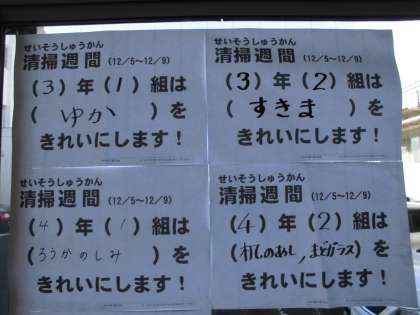 せいそうしゅうかん
清掃週間 (12/5～12/9)
(3)年(1)組は
(ゆか)を
きれいにします!
せいそうしゅうかん
清掃週間 (12/5～12/9)
(3)年(2)組は
(すきま)を
きれいにします!
せいそうしゅうかん
清掃週間 (12/5～12/9)
(4)年(1)組は
(ろうかのしみ)を
きれいにします!
せいそうしゅうかん
清掃週間 (12/5～12/9)
(4)年(2)組は
(のあし、まどガラス)を
きれいにします!